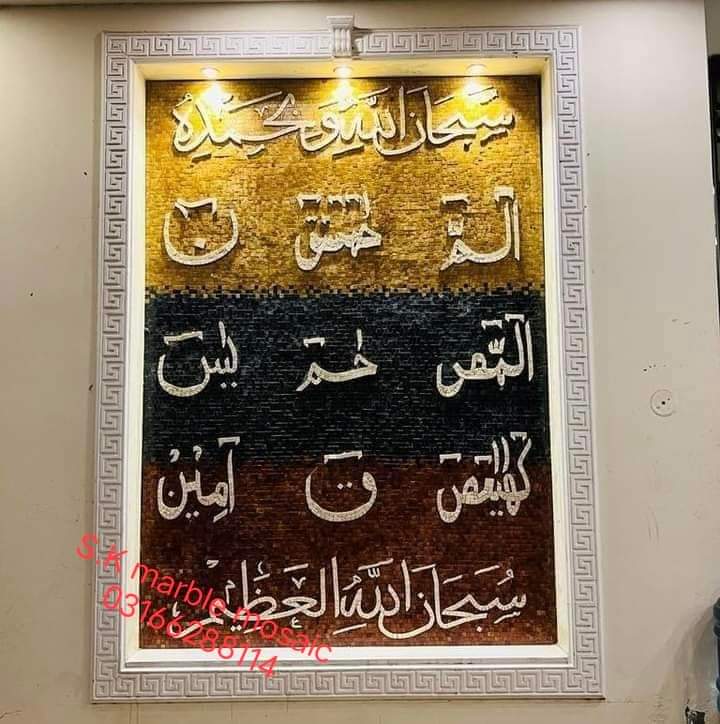 سُبْحَانَ اللّٰهِ وَبِحَمْدِهٖ
الٓمّٓ حٓمٓعٓسٓقٓ نٓ
الٓمّٓصٓ حٰمٓ يٰسٓ
كٓهٰيٰعٓصٓ قٓ آمِيْنْ
سُبْحَانَ اللّٰهِ الْعَظِيْمِ
S.K marble mosaic
03166288114